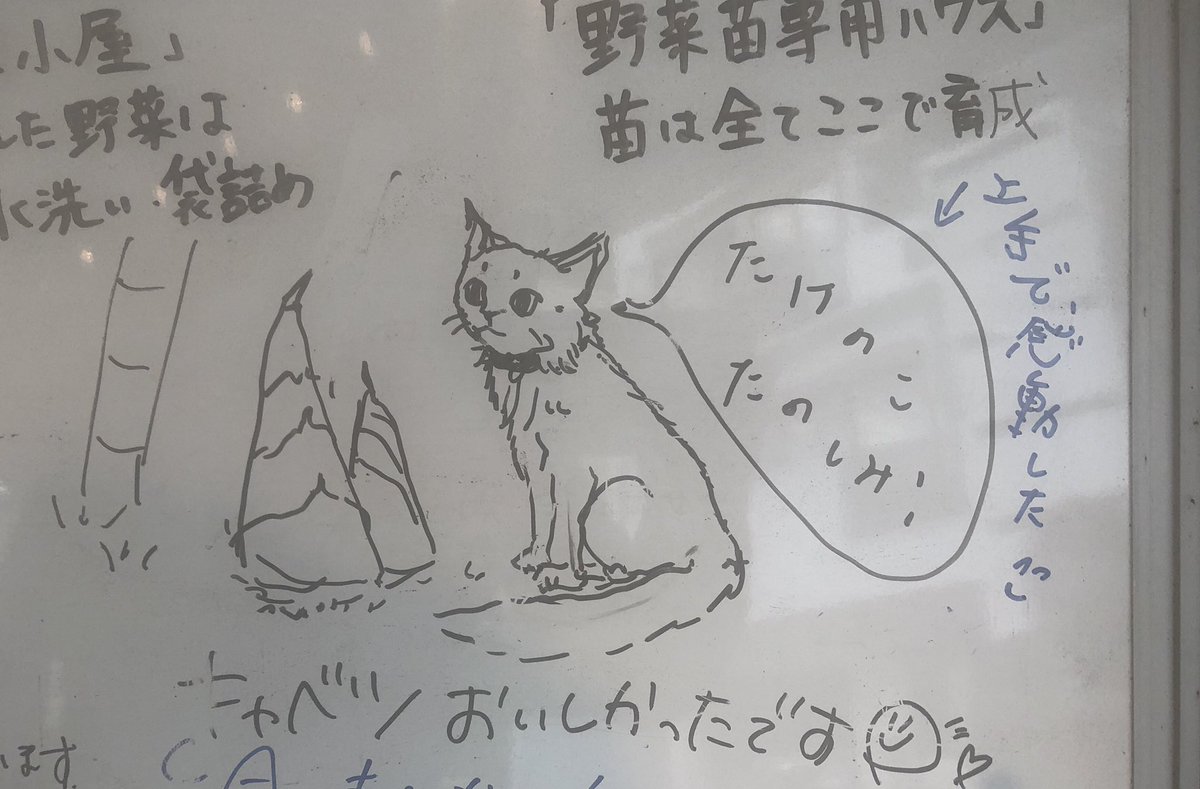 小屋」
した野菜は
水洗い・袋詰め
「野菜苗専用ハウス」
苗は全てここで育成
たけのこ
たのしみ!
↙上手で感動した
キャベツおいしかったです
います